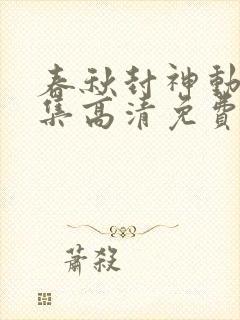 春秋封神動
集高清免費
蕭殺